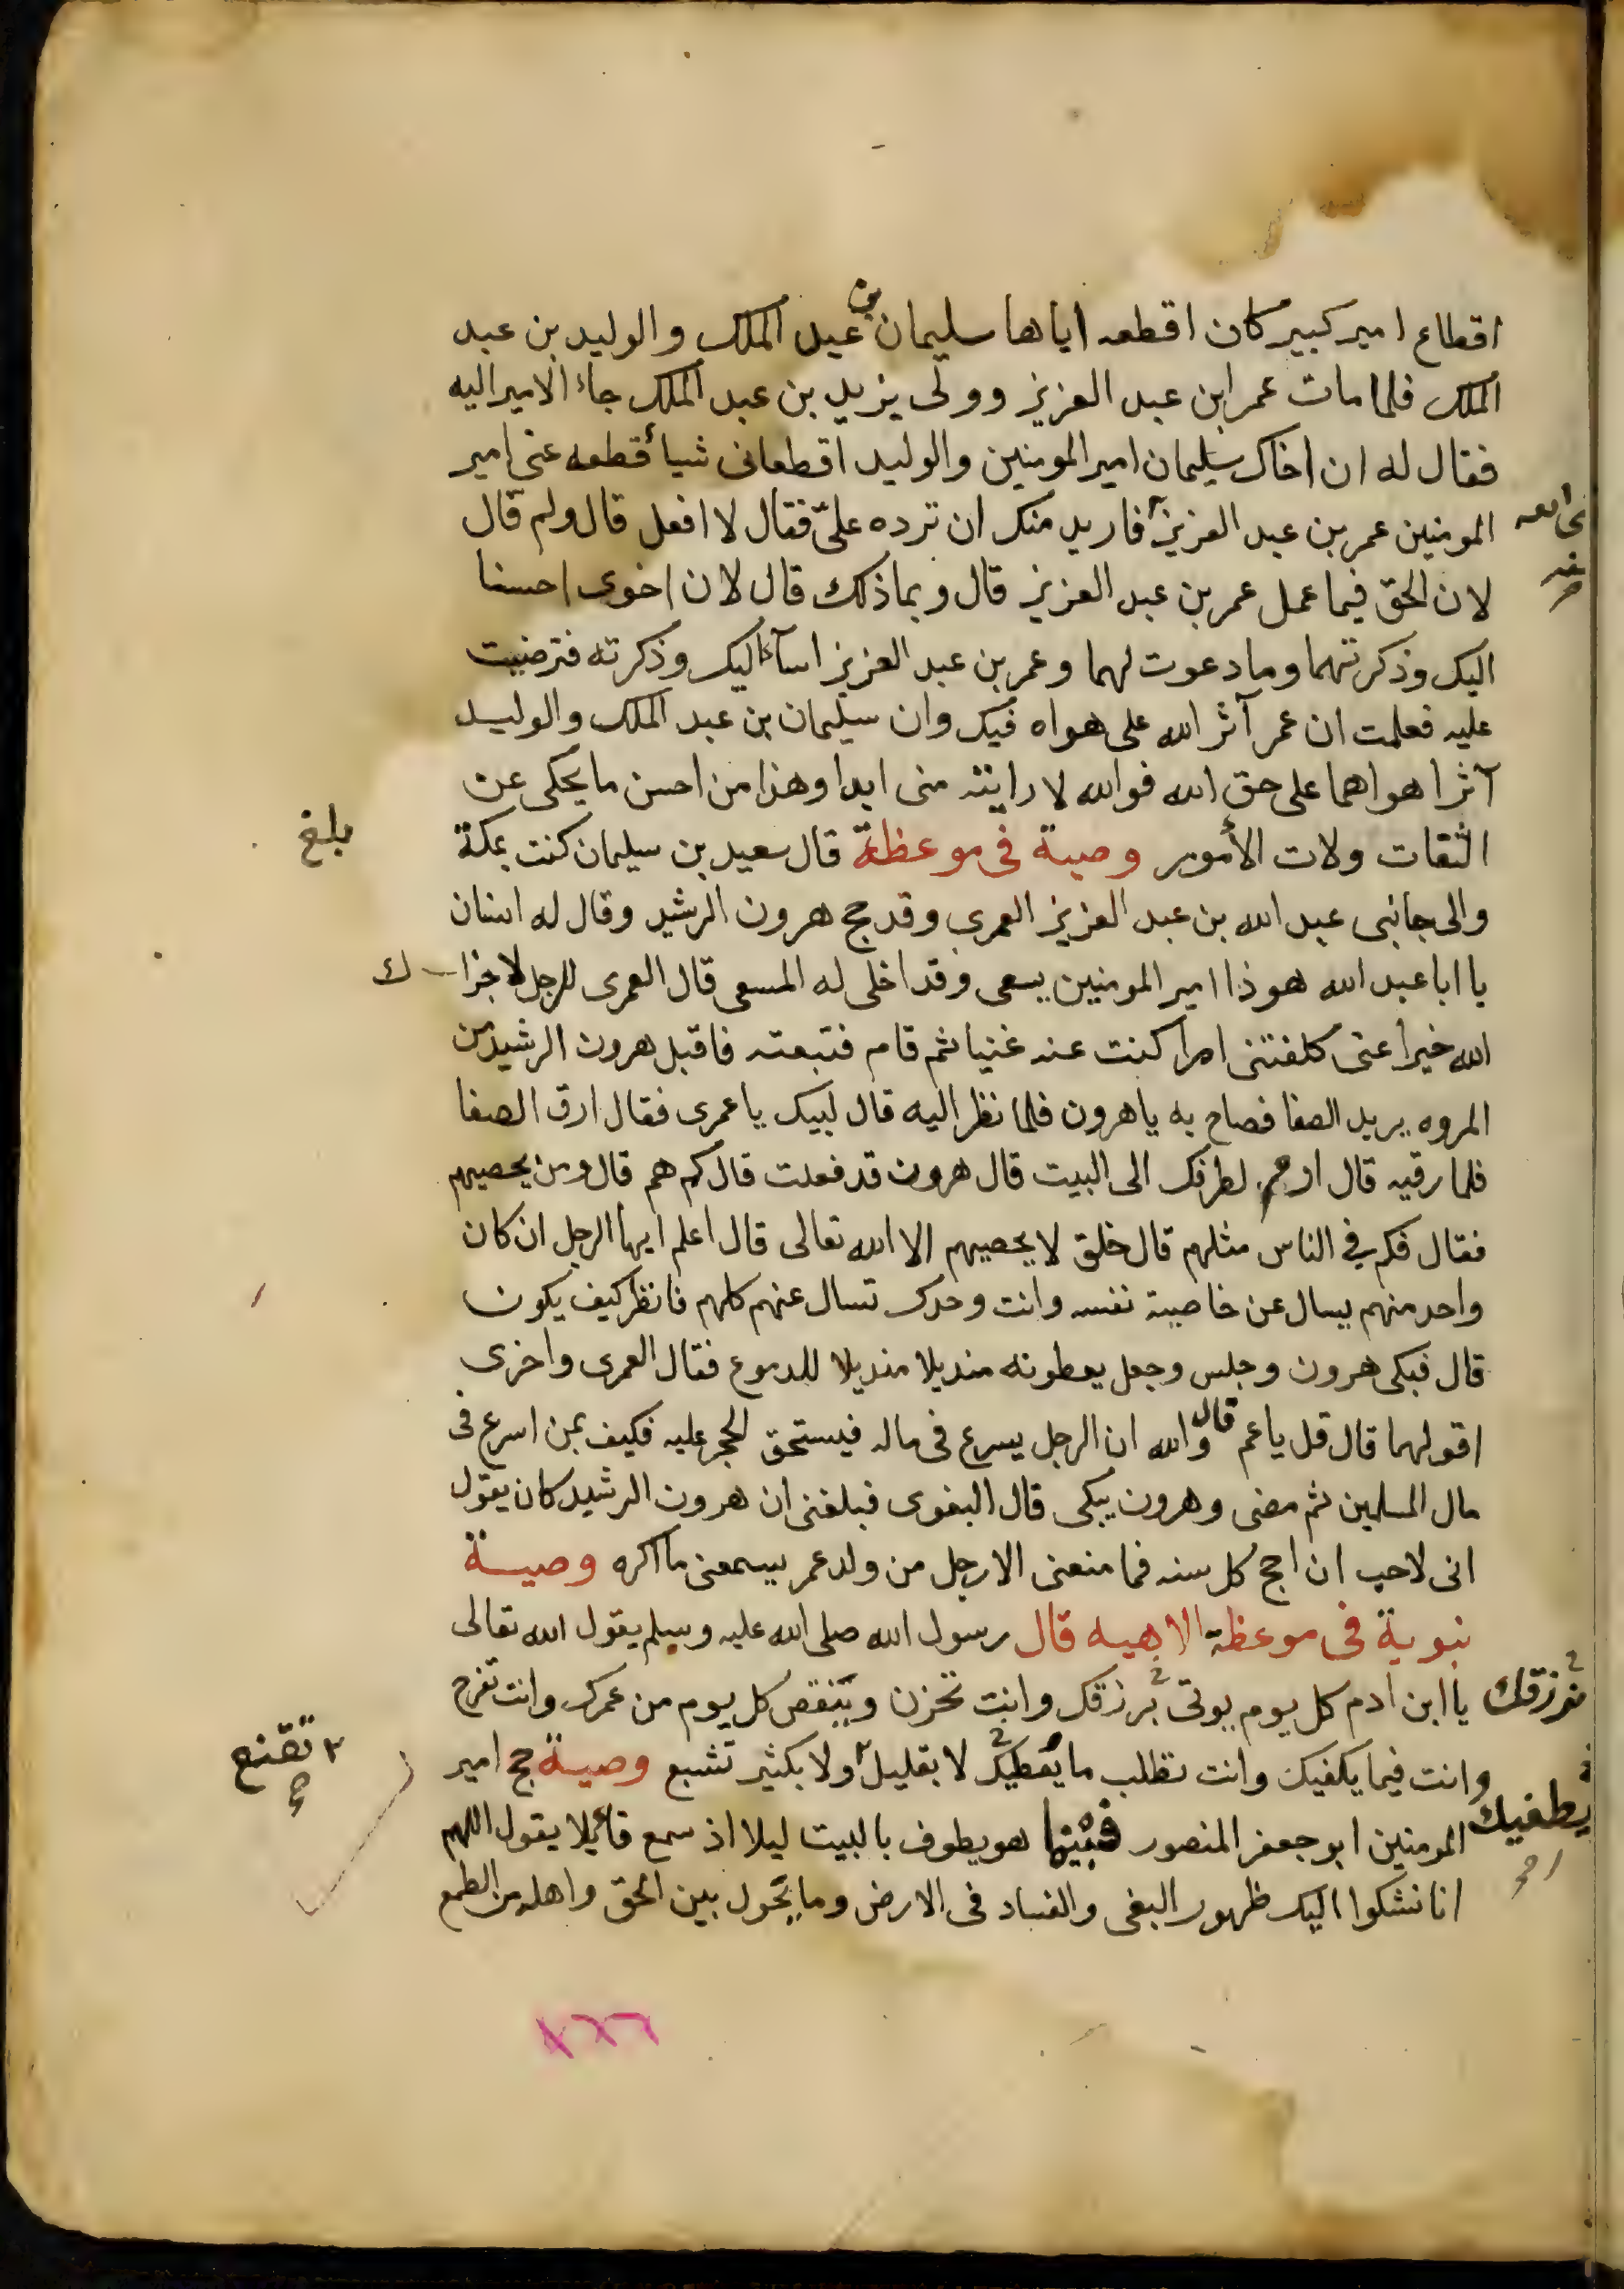 اقطاع امير كبير كان اقطعه اياها سليمان بن عبد الملك والوليد بن عبد
الملك فلما مات عمر ابن عبد العزيز وولى يزيد بن عبد الملك جاء الامير اليه
فقال له ان اخاك سليمان امير المومنين والوليد اقطعانى شيأ قطعه عنى امير
المومنين عمر بن عبد العزيز فاريد منك ان ترده علىّ فقال لا افعل قال ولم قال
لان الحق فيما عمل عمر بن عبد العزيز قال وبماذلك قال لان اخوى احسنا
اليك وذكرتهما وما دعوت لهما وعمر بن عبد العزيز اسآء اليك وذكرته فترضيت
عليه فعلمت ان عمر آثر الله على هواه فيك وان سليمان بن عبد الملك والوليد
آثرا هواهما على حق الله فوالله لا رايته منى ابدا وهذا من احسن ما يحكى عن
الثقات ولات الأمور وصية فى موعظة قال سعيد بن سليمان كنت بمكة
بلغ
والى جانبى عبد الله بن عبد العزيز العمرى وقد حج هرون الرشيد وقال له انسان
يا ابا عبد الله هو ذا امير المومنين يسعى وقد اخلى له المسعى قال العمرى للرجل لا جزا ك
الله خيرا عنى كلفتنى امرا كنت عنه غنيا ثم قام فتبعته فاقبل هرون الرشيد من
المروه يريد الصفا فصاح به ياهرون فلما نظر اليه قال لبيك يا عمرى فقال ارق الصفا
فلما رقيه قال ارم لطرفك الى البيت قال هرون قد فعلت قال كم هم قال ومن يحصيهم
فقال فكم فى الناس مثلهم قال خلق لا يحصيهم الا الله تعالى قال اعلم ايها الرجل ان كان
واحد منهم يسال عن خاصية نفسه وانت وحدك تسال عنهم كلهم فانظر كيف يكون
قال فبكى هرون وجلس وجعل يعطونه منديلا منديلا للدموع فقال العمرى واخرى
اقولهما قال قل يا عم قال والله ان الرجل يسرع فى ماله فيستحق الحجر عليه فكيف بمن اسرع فى
مال المسلمين ثم مضى وهرون يبكى قال البغوى فبلغنى ان هرون الرشيد كان يقول
انى لاحب ان احج كل سنه فما منعنى الا رجل من ولد عمر يسمعنى ما اكره وصية
نبوية فى موعظة الاهيه قال رسول الله صلى الله عليه وسلم يقول الله تعالى
يا ابن ادم كل يوم يوتى برزقك وانت تحزن وينقص كل يوم من عمرك وانت تفرح
وانت فيما يكفيك وانت تطلب ما يطغيك لا بقليل ولا بكثير تشبع وصية حج امير
تقنع
يطغيك
المومنين ابو جعفر المنصور فبينما هو يطوف بالبيت ليلا اذ سمع قائيلا يقول اللهم
انا نشكوا اليك ظهور البغى والفساد فى الارض وما يحول بين الحق واهله من الطمع